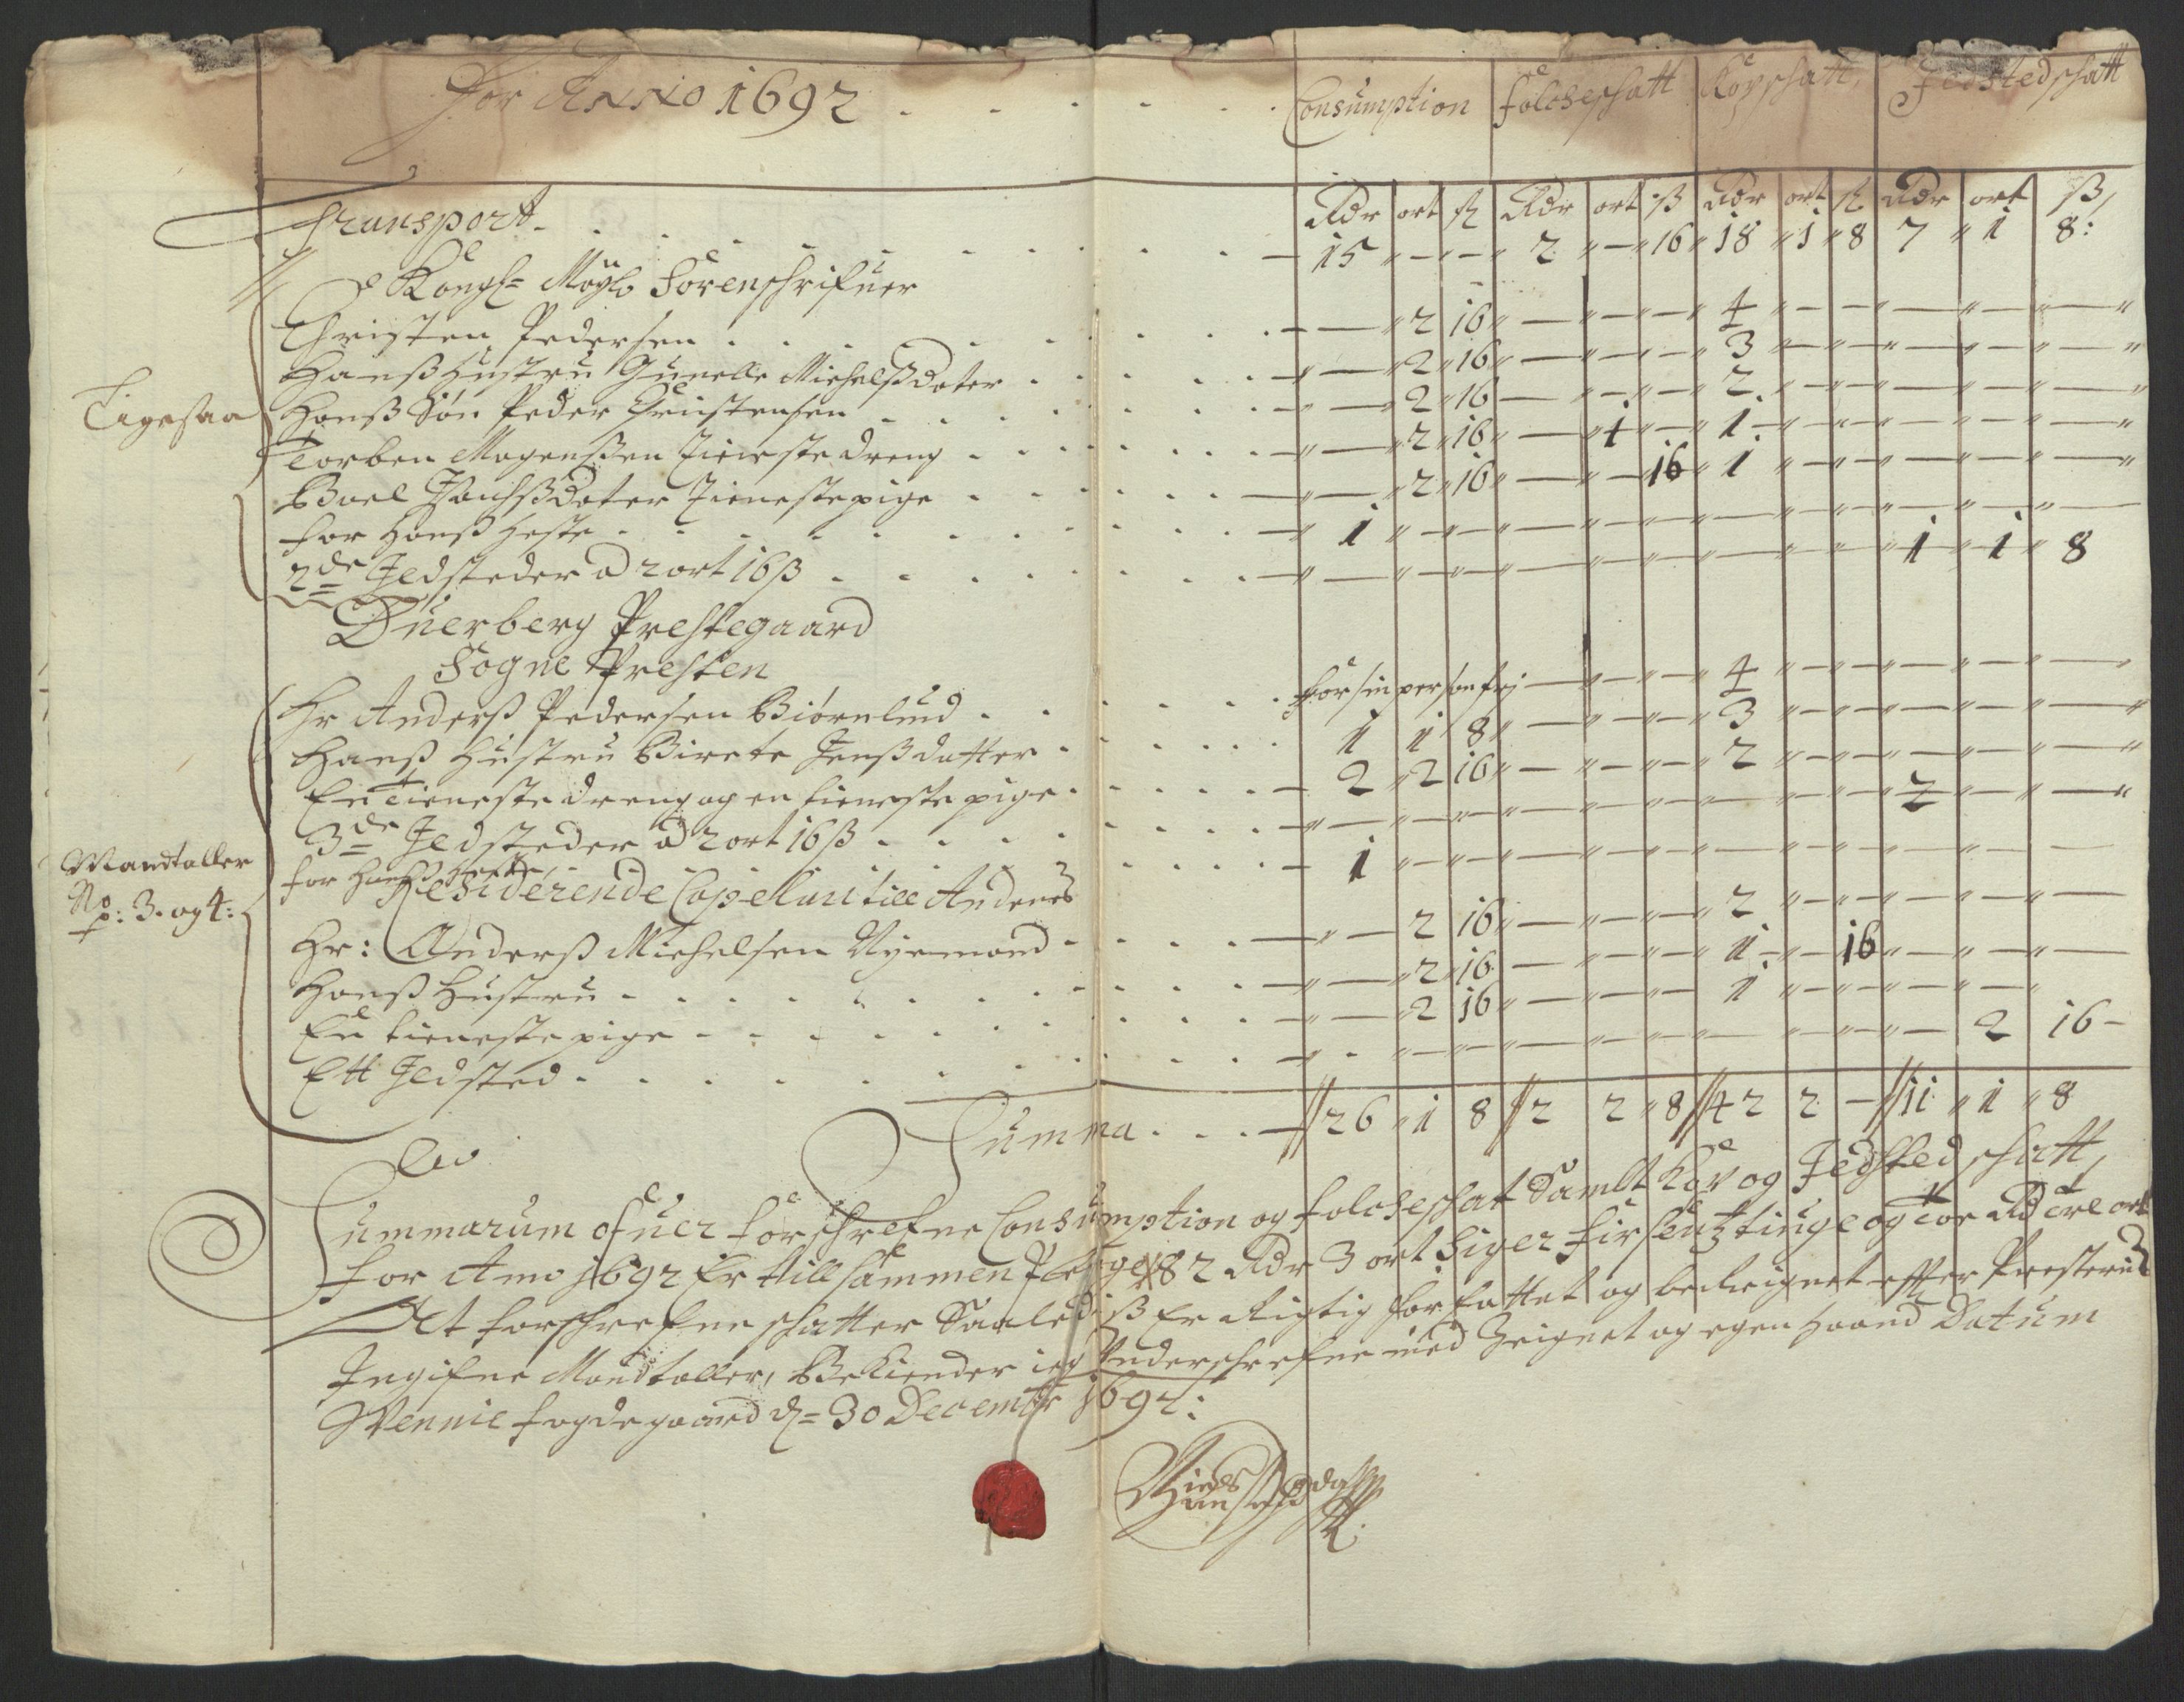 For Anno 1692 . . . . . Consumption Folcheschatt Kopschatt, Jldstedschatt
Rdr ort ß Rdr ort ß Rdr ort ß Rdr ort ß
Transport. . . . . 15 " – " – " 2 " – " 16 " 18 " 1 " 8 7 " 1 8:
Kongl= Maÿls Sorenschrifuer
Christen Pedersen . . . . – " 2 16 " – " – " – " 4 " – " – " – " – " –
Hanß Hustru Gunelle Michelßdater . . . – " 2 " 16 " – " – " – " 3 " – " – " – " – " –
Hanß Søn Peder Christensen . . . – " 2 " 16 – " – " – " 2 " – " – " – " – " –
Tigesaa
Torben Mogenßen Tieneste dreng . . . – " 2 " 16 " – " 1 " – " 1 " – " – " – " – " –
Boel Dater Tienestepige . . . – " 2 " 16 " – " – 16 " 1 " – " – " – " – " –
for Hanß Heste . . . 1 " – " – " – " – " – " – " – " – " – " –
2de Jldsteder a 2 ort 16 ß . . . – " – " – " – " – " – " – " – " – " 1 " 1 " 8
Duerberg Prestegaard
Sogne Presten
Hr Anderß Pedersen Biørnlund . . . for sin person frj – " – " – " 4 " – " – " – " – " –
Hanß Hustru Birete Jenßdatter . . . 1 1 8 " – " – " – " 3 " – " – " – " – " –
En Tieneste dreng og en tieneste pige . . . 2 " 2 16 " – " – " – " 2 " – " – " – " – " –
3de Jldsteder a 2 ort 16 ß . . . – " – " – " – " – " – " – " – " – " 2 " – " –
Mandtaller
No: 3. og 4:
for Hanß Heste . . . 1 " – " – " – " – " – " – " – " – " –
Residerende Capellan till Andenes
Hr: Anderß Michelsen Nyemand . . . – " – 2 16 " – " – " – " 2 " – " – " – " – " –
Hanß Hustru . . . – " 2 " 16 " – " – " – " 1 " – " 16 " – " – " –
En tienestepige . . . – " 2 16 " – " – " – " 1 " – " – " – " – "
Ett Jldsted . . . – " – " – " – " – " – " – " – " – " – 2 16 –
Summa . . . 26 " 1 8 2 2 " 8 42 2 – 11 " 1 " 8
Summarum ofuer forschrefne Consumption og folcheschat Samlt Kop og Jldsted schatt,
for Anno 1692 Er tillsammen Penge 82 Rdr 3 ort Siger firsenztiuge og Toe Rd tre ort
At forschrefne schatter Saaledeß Er Rigtig forfattet og beReignet effter Presterneß
Jngifne Mandtaller, Bekiender ieg Underschrefne med Zeignet og egen Haand Datum
Wennie fogdegaard d= 30 Decembr 1692: